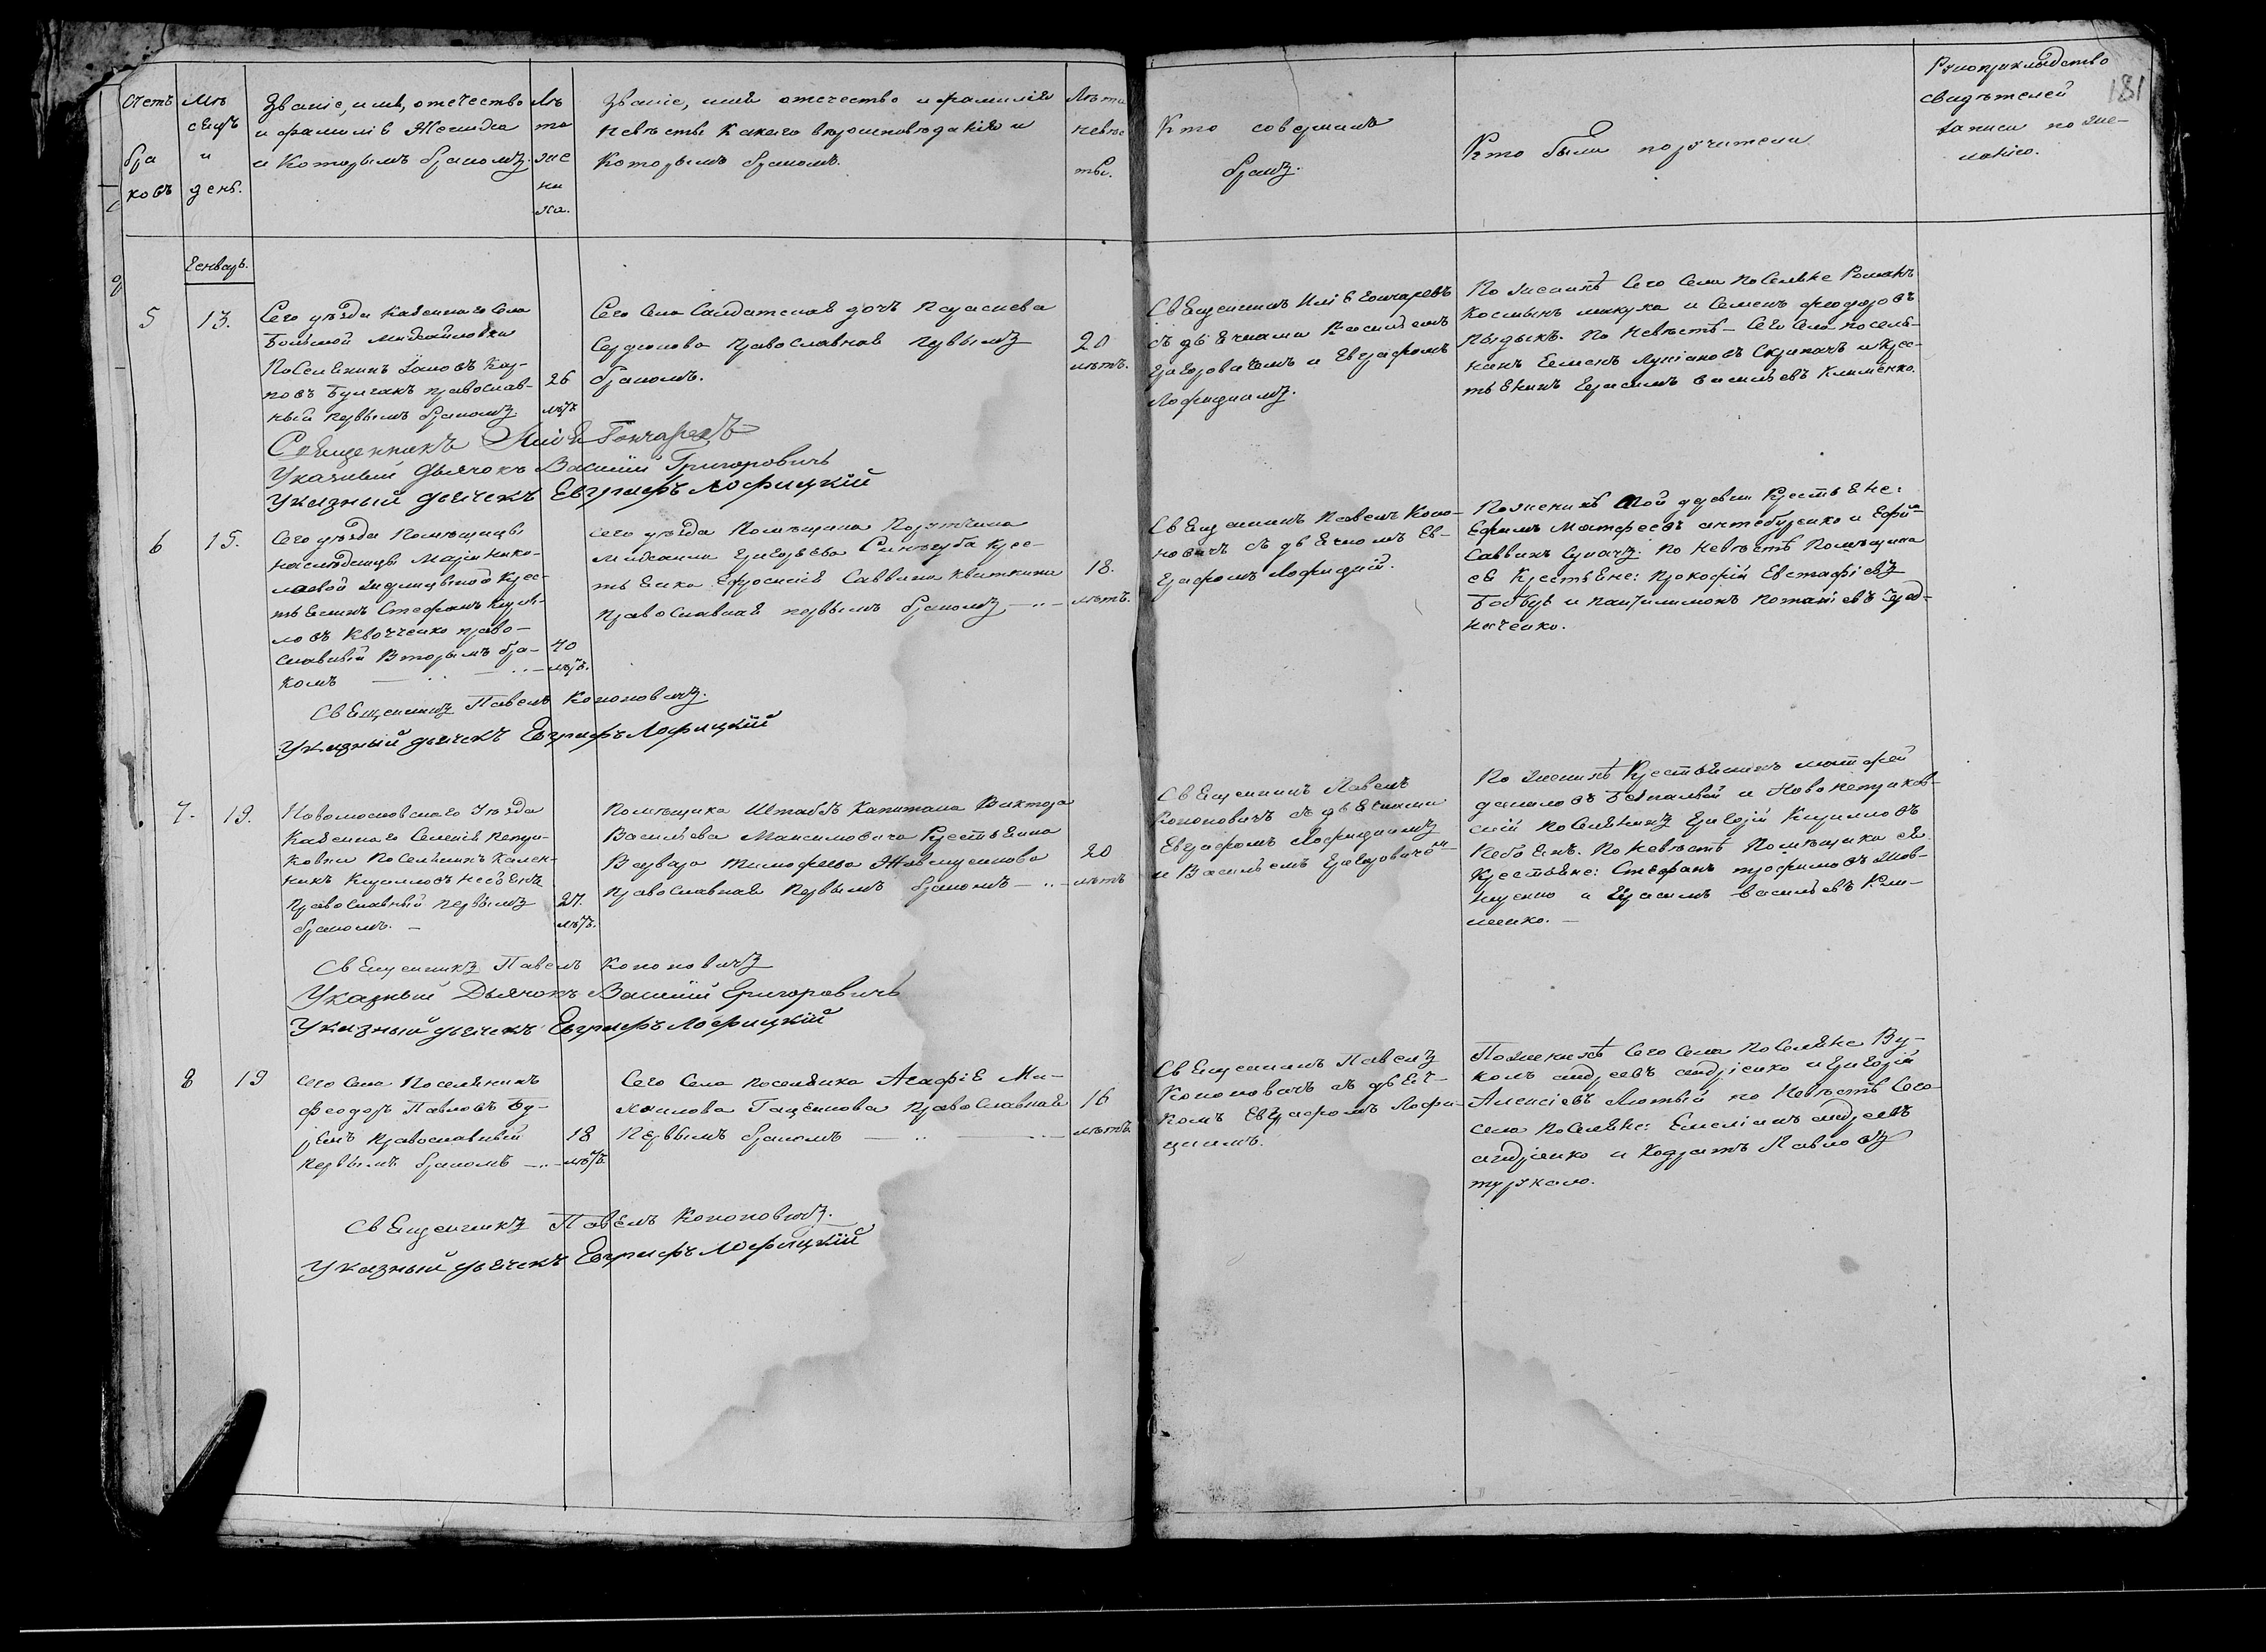 181
Счетъ бра ковъ
Мѣ сяцъ и день.
Званіе, имя, отечество
и фамилія Жениха
и Которымъ бракомъ.
Лѣ та же ни ха.
Званіе, имя отечество и фамилія
Невѣсты Какого вѣроисповѣданія и
Которымъ бракомъ.
Лѣта невѣс ты.
Кто совершалъ
бракъ.
Кто были поручители
Рукоприкладство
свидѣтелей
записи по же-
ланію.
Генварь.
5
13.
Сего уѣзда казеннаго села
Большой Михайловки
Поселянинъ Іаковъ Кар-
повъ православ-
ный первымъ бракомъ
26
лѣтъ
Сего Села Салдатская дочь Параскева
Сердюкова православная первымъ
бракомъ.
20
лѣтъ.
Священникъ Илія Гончаревъ
съ дьячками Василіемъ
Григоровичемъ и Евграфомъ
Лофицкимъ.
По женихѣ Сего Села Поселяне Романъ
Косминъ макуха и Семенъ феодоровъ
По Невѣстѣ – Сего Села посел-
Скрипачъ и Крес-
тьянинъ Герасимъ василіевъ Клименко.
Священникъ Илія Гончаревъ
Указный Дьячокъ Василій Григоровичь
Указный дьячекъ Евграфъ Лофицкій
6
15.
Сего уѣзда Помѣщицы
наслѣдницы Маріи Нико-
лаевой Крес-
тьянинъ Стефанъ Кирил-
ловъ право-
славный Вторымъ бра-
комъ
40
лѣтъ.
Сего уѣзда Помѣщика
Михаила Григорьева Синегуба крес-
тьянка Ефросинія Саввина Квиткина
православная первымъ бракомъ
18.
лѣтъ.
Священникъ Павелъ Коно-
новичъ съ дьячкомъ Ев-
графомъ Лофицкій.
По женихѣ той деревни Крестьяне:
Ефимъ Матфеевъ
Саввинъ По невѣстѣ Помѣщика
Крестьяне: Прокофій Евстафіевъ
и Пантилимонъ Потапіевъ
Священникъ Павелъ Кононовичъ.
Указный дьячекъ Евграфъ Лофицкій
7.
19.
Новомосковскаго Уѣзда
Казеннаго Селенія
Поселянинъ Кален-
никъ Кирилловъ
Православный первымъ
бракомъ.
27.
лѣтъ.
Помѣщика Штабъ Капитана Виктора
Васильева Максимовича Крестьянка
Варвара Тимофеева
Православная Первымъ бракомъ
20
лѣтъ
Священникъ Павелъ
Кононовичъ съ дьячками
Евграфомъ Лофицкимъ
и Василіемъ Григоровичомъ
По женихѣ Крестьянинъ матфей
даниловъ и
Поселянинъ Григорій Кирилловъ
По Невѣстѣ Помѣщика
Крестьяне: Стефанъ трофимовъ
и Герасимъ василіевъ Кли-
менко.
Священникъ Павелъ Кононовичъ
Указный Дьячокъ Василій Григоровичь
Указный дьячекъ Евграфъ Лофицкій
8
19
Сего Села Поселянинъ
Феодоръ Павловъ
Православный
первымъ бракомъ
18
лѣтъ.
Сего Села поселянка Агафія Ми-
хаилова Гащенкова Православная
Первымъ бракомъ
16
лѣтъ
Священникъ Павелъ
Кононовичъ съ дьяч-
комъ Евграфомъ Лофи-
цкимъ.
По женихѣ Сего Села Поселяне Ву-
колъ андреевъ андріенко и Григорій
Алексіевъ Лютый по Невѣстѣ Сего
села Поселяне: Емеліанъ андреевъ
андріенко и Кодратъ Павловъ
туркало.
Священникъ Павелъ Кононовичъ.
Указный дьячекъ Евграфъ Лофицкій